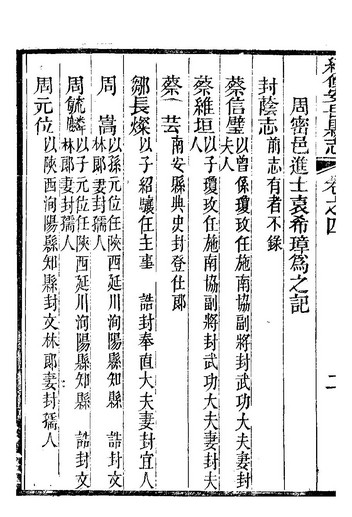 續修安岳縣志 卷之四
周密邑進士袁希璋為之記
封蔭志 前志有者不錄
蔡信璧 以曾係瓊玫任施南協副將封武功大夫妻封夫人
蔡維垣 以子瓊玫任施南協副將封武功大夫妻封夫人
蔡一芸 南安縣典史封登仕郎
鄒長燦 以子紹驤任主事 誥封奉直大夫妻封宜人
周 嵩 以孫元位任陝西延川洵陽縣知縣 誥封文林郎妻封孺人
周毓麟 以子元位任陝西延川洵陽縣知縣 誥封文林郎妻封孺人
周元位 以陝西洵陽縣知縣封文林郎妻封孺人
二